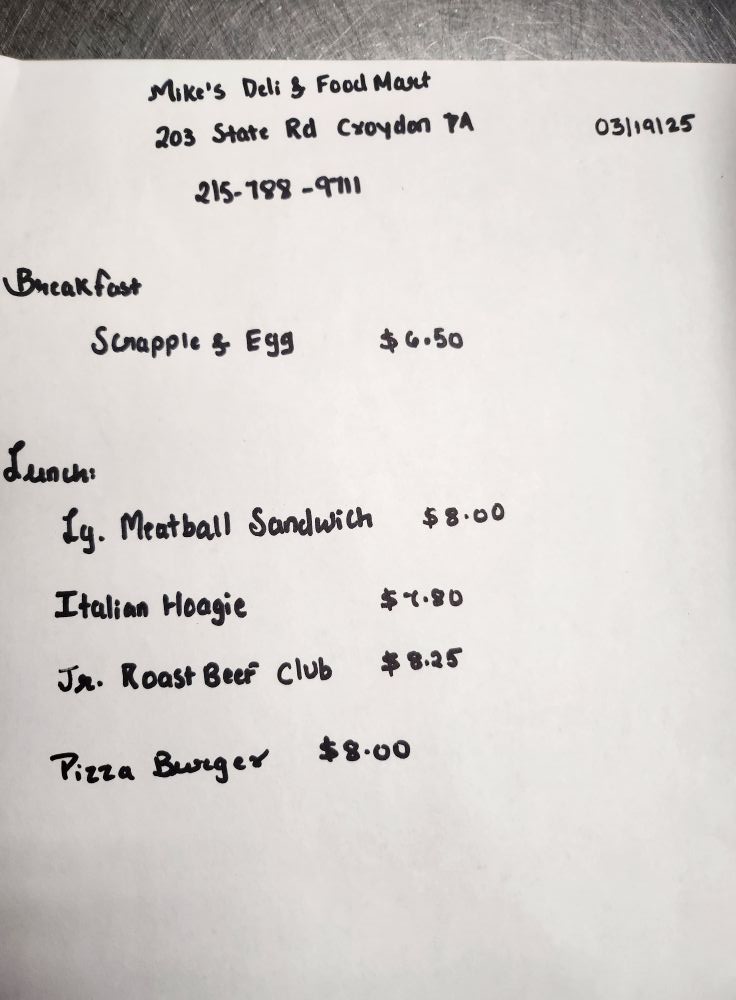 Mike's Deli & Food Mart
203 State Rd Croydon PA 03/19/25
215-788-9711
Breakfast
Scrapple & Egg $6.50
Lunch:
Lg. Meatball Sandwich $8.00
Italian Hoagie $7.80
Jr. Roast Beef Club $8.25
Pizza Burger $8.00